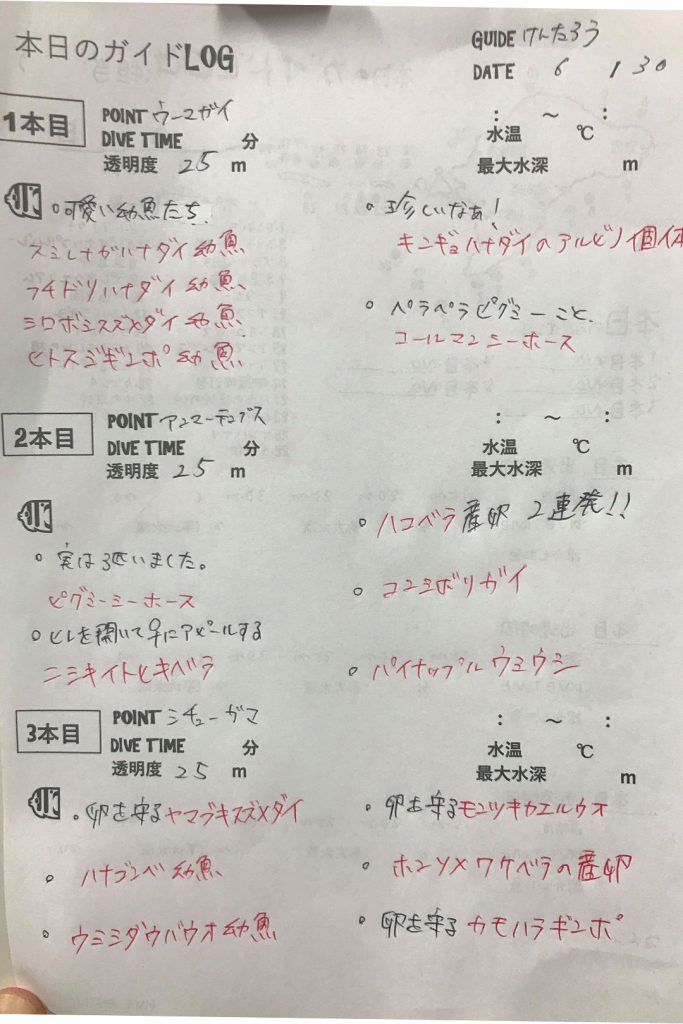 本日のガイドLOG
GUIDE けんたろう
DATE 6 / 30
1本目
POINT ウーマガイ
DIVE TIME 分
透明度 25 m
: ～ :
水温 ℃
最大水深 m
○可愛い幼魚たち!
スミレナガハナダイ幼魚
フチドリハナダイ幼魚
シロボシスズメダイ幼魚
ヒトスジギンポ幼魚
○珍しいなぁ!
キンギョハナダイのアルビノ個体
○ペラペラピグミーこと、
コールマンシーホース
2本目
POINT アンマーチュブス
DIVE TIME 分
透明度 25 m
: ～ :
水温 ℃
最大水深 m
○実は3匹いました。
ピグミーシーホース
○ヒレを開いて♀にアピールする
ニシキイトヒキベラ
○ハコベラ産卵 2連発!!
○コンシボリガイ
○パイナップルウミウシ
3本目
POINT シチューガマ
DIVE TIME 分
透明度 25 m
: ～ :
水温 ℃
最大水深 m
○卵を守るヤマブキスズメダイ
○ハナゴンベ幼魚
○ウミシダウバウオ幼魚
○卵を守るモンツキカエルウオ
○ホンソメワケベラの産卵
○卵を守るカモハラギンポ